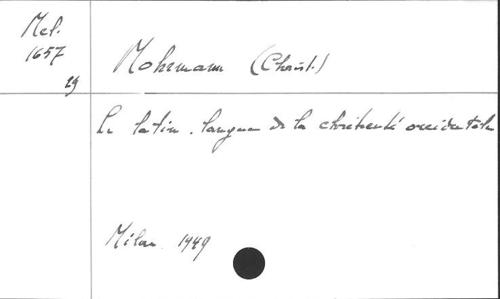 Mel.
1657
29
Mohrmann (Christ.)
Le latin, langue de la chrétienté occidentale
Milan. 1949